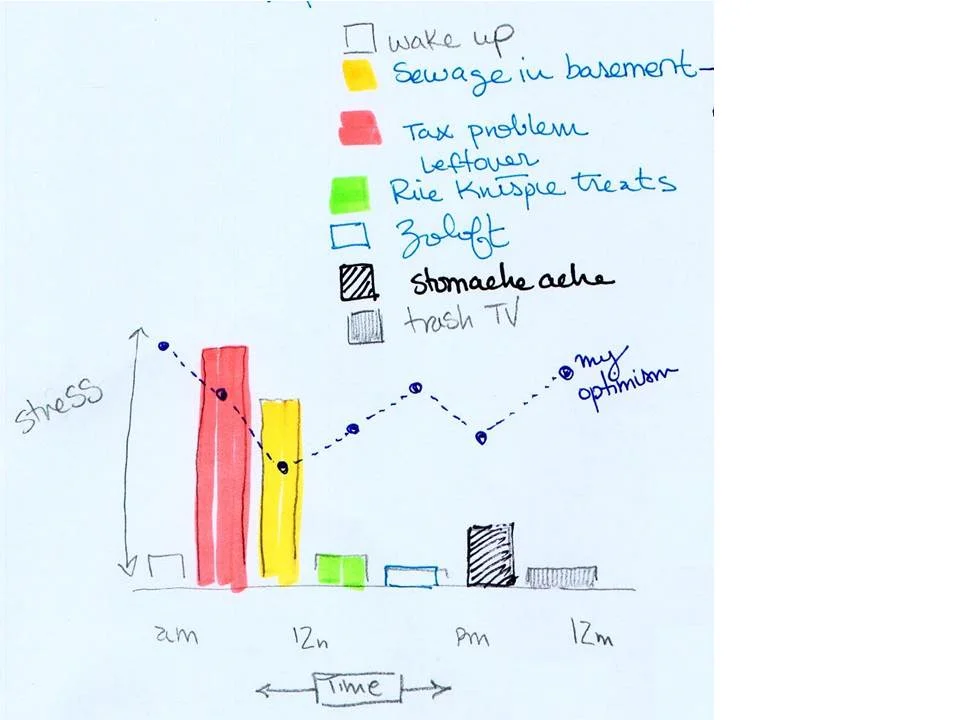 wake up
Sewage in basement
Tax problem
Leftover
Rice Knispie treats
Zoloft
stomache ache
trash TV
stress
my
optimism
am
12n
pm
12m
Time